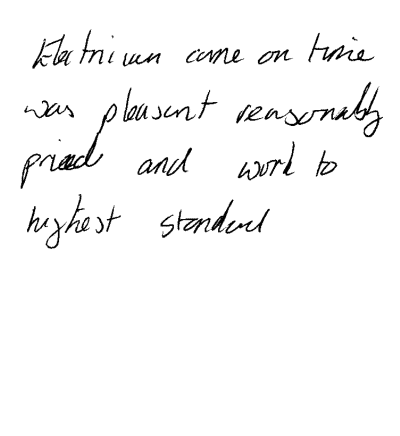 Electrician came on time
was pleasant reasonably
priced and work to
highest standard